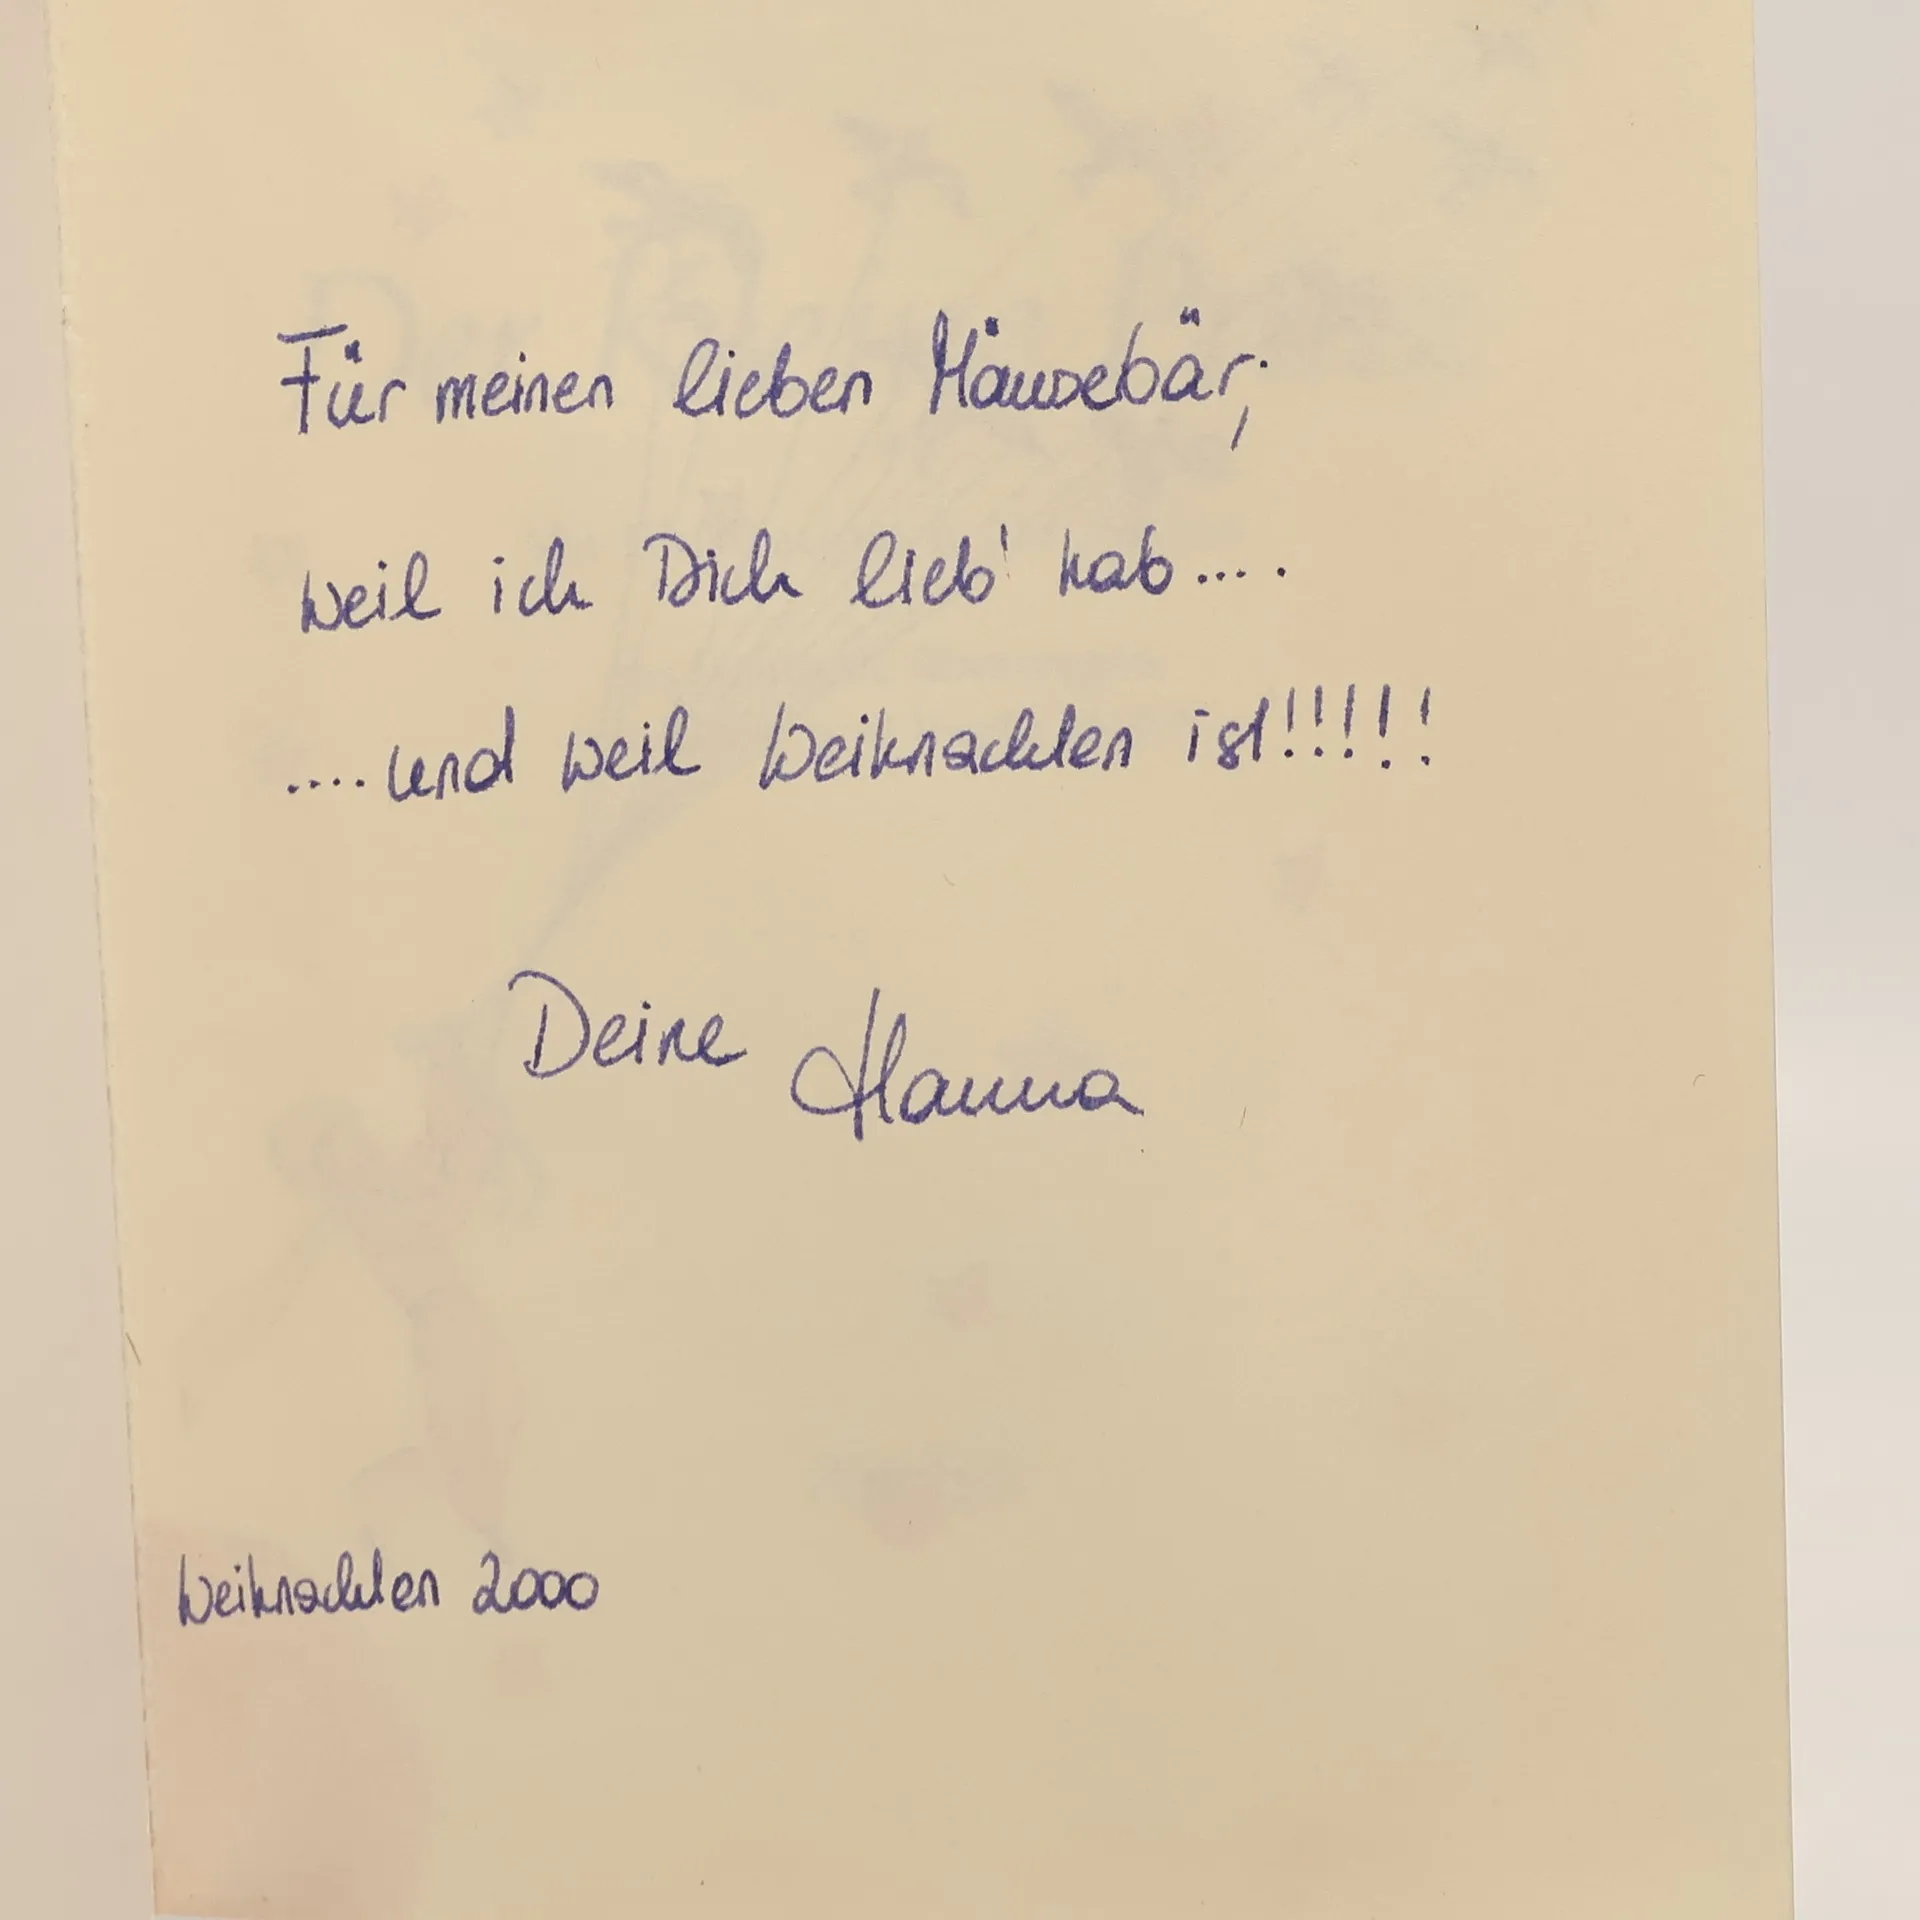 Für meinen lieben Mäusebär;
weil ich Dich lieb' hab....
....und weil Weihnachten ist!!!!!
Deine Hanna
Weihnachten 2000